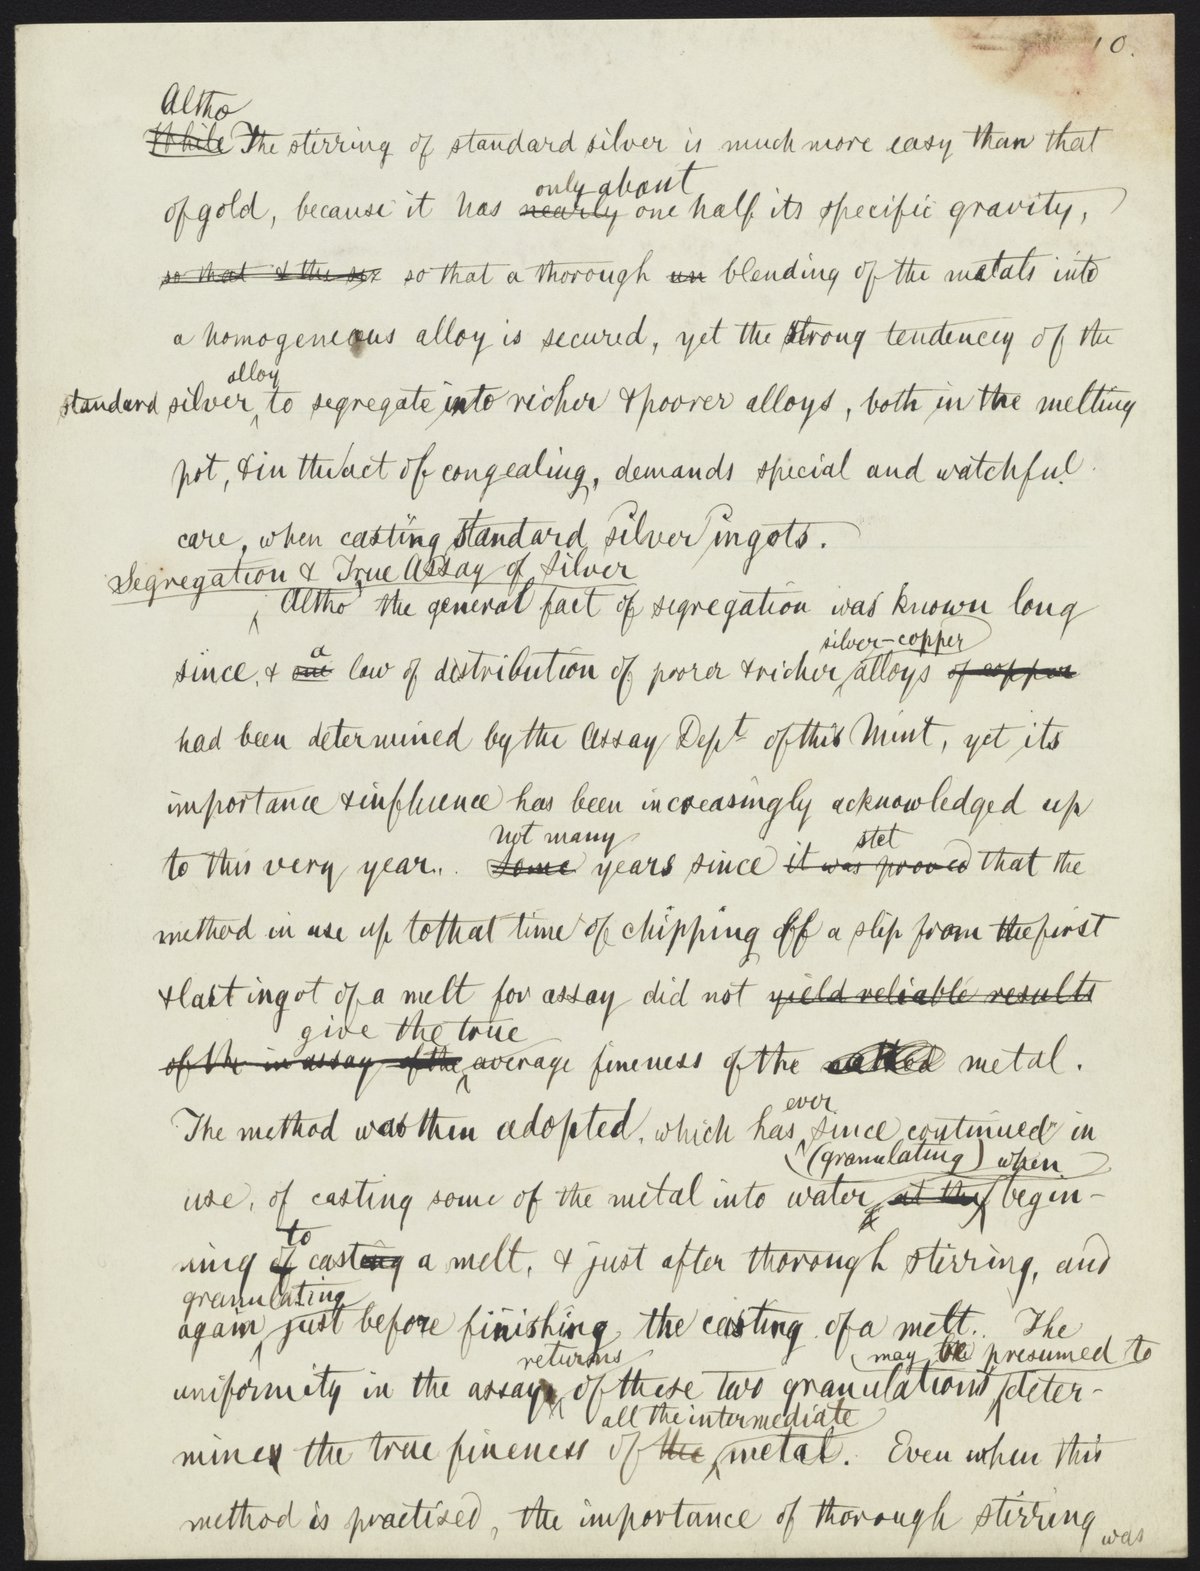 10.
Altho
While The stirring of standard silver is much more easy than that
only about
of gold, because it has nearly one half its specific gravity,
so that & the sex so that a thorough un blending of the metals into
a homogeneous alloy is secured, yet the strong tendencey of the
alloy
standard silver to segregate into richer & poorer alloys, both in the melting
pot, & in the act of congealing, demands special and watchful
care, when casting standard silver ingots.
Segregation & True Assay of Silver
Altho the general fact of segregation was known long
silver-copper
since, & one a law of distribution of poorer & richer alloys of copper
had been determined by the Assay Dept of this Mint, yet its
importance & influence has been increasingly acknowledged up
not many stet
to this very year. Some years since it was proved that the
method in use up to that time of chipping off a slip from the first
& last ingot of a melt for assay did not yield reliable results
give the true
of the in assay of the average fineness of the metal.
The method was then adopted, which has since continued in
ever
(granulating) when
use, of casting some of the metal into water, at the begin-
to
ning of casting a melt, & just after thorough stirring, and
granulating
again just before finishing the casting of a melt. The
returns may be presumed to
uniformity in the assay of these two granulations deter-
all the intermediate
mines the true fineness of the metal. Even when this
method is practised, the importance of thorough stirring
was